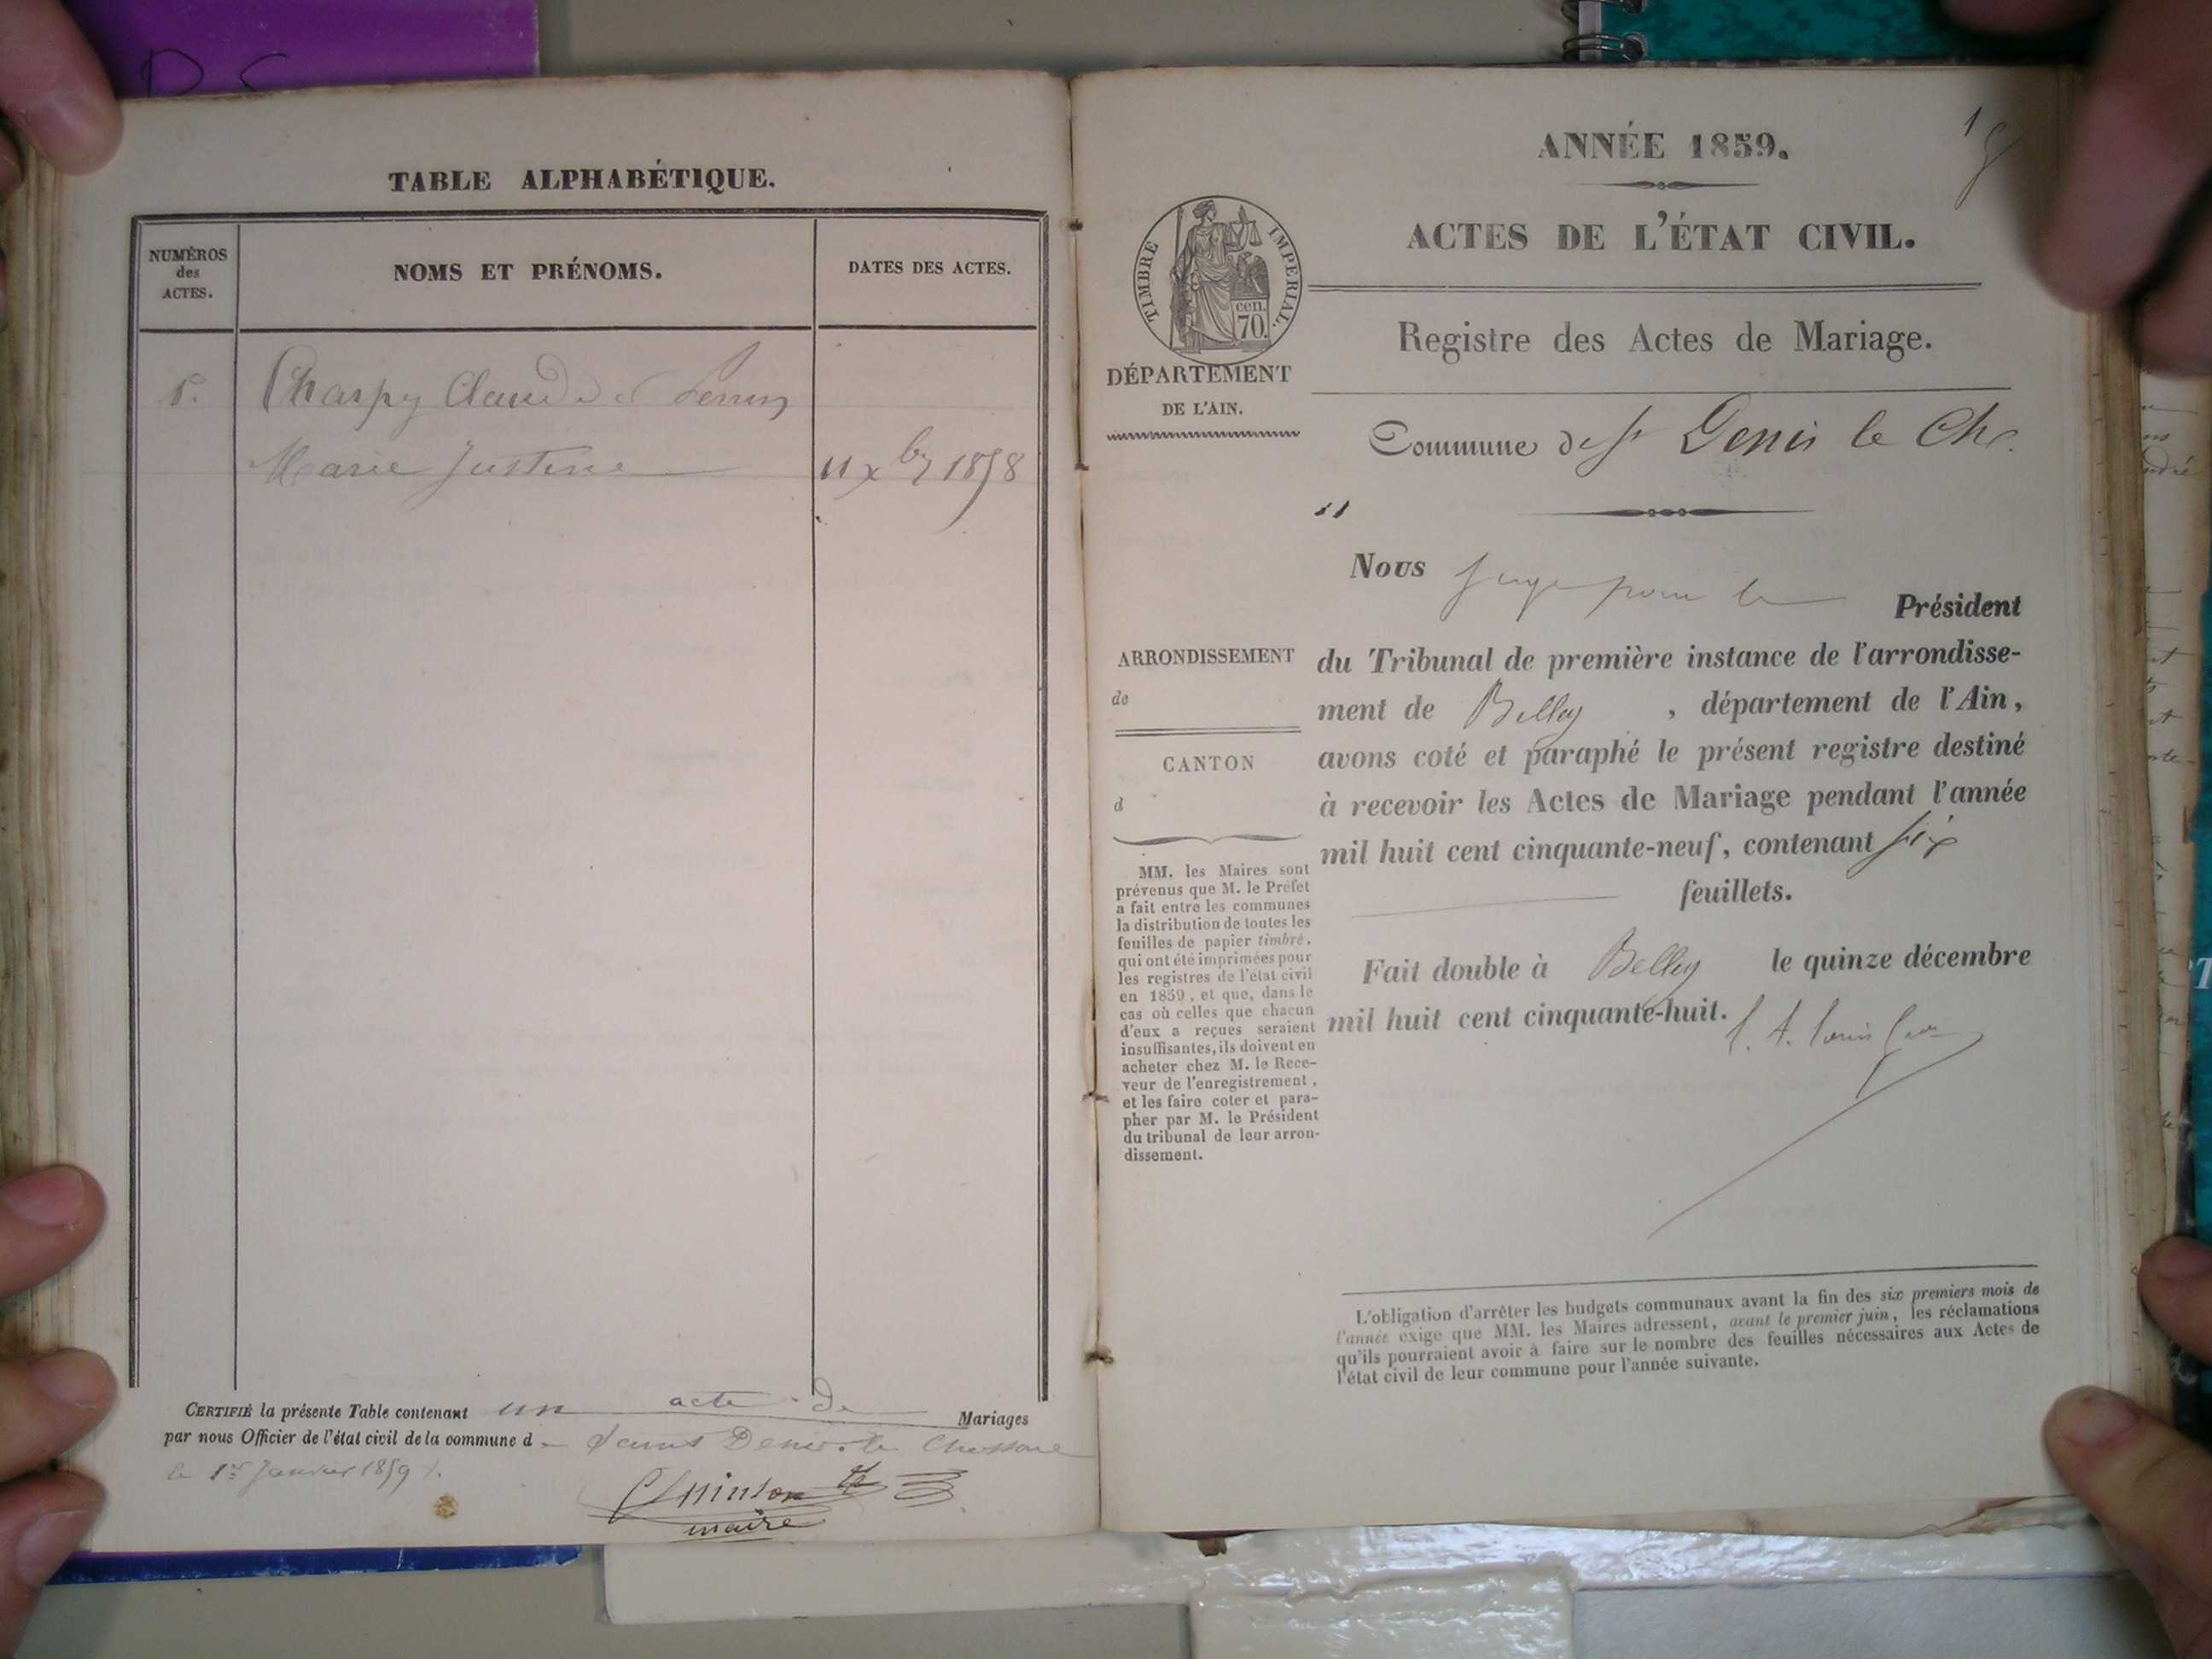 TABLE ALPHABÉTIQUE.
NUMÉROS
des
ACTES.
NOMS ET PRÉNOMS.
DATES DES ACTES.
1º.
Charpy Claude
Marie Justine 11 xbre 1858
CERTIFIÉ la présente Table contenant un acte de Mariages
par nous Officier de l'état civil de la commune d Saint Denis le Chosson
le 1er Janvier 1859.
maire
ANNÉE 1859.
ACTES DE L'ÉTAT CIVIL.
TIMBRE IMPERIAL.
cen.
70.
Registre des Actes de Mariage.
DÉPARTEMENT
DE L'AIN.
Commune de St Denis le Ch.
Nous Juge pour le Président
ARRONDISSEMENT
de
CANTON
d
MM. les Maires sont
prévenus que M. le Préfet
a fait entre les communes
la distribution de toutes les
feuilles de papier timbré,
qui ont été imprimées pour
les registres de l'état civil
en 1859, et que, dans le
cas où celles que chacun
d'eux a reçues seraient
insuffisantes, ils doivent en
acheter chez M. le Rece-
veur de l'enregistrement,
et les faire coter et para-
pher par M. le Président
du tribunal de leur arron-
dissement.
du Tribunal de première instance de l'arrondisse-
ment de Belley, département de l'Ain,
avons coté et paraphé le présent registre destiné
à recevoir les Actes de Mariage pendant l'année
mil huit cent cinquante-neuf, contenant six
feuillets.
Fait double à Belley le quinze décembre
mil huit cent cinquante-huit.
L'obligation d'arrêter les budgets communaux avant la fin des six premiers mois de
l'année exige que MM. les Maires adressent, avant le premier juin, les réclamations
qu'ils pourraient avoir à faire sur le nombre des feuilles nécessaires aux Actes de
l'état civil de leur commune pour l'année suivante.